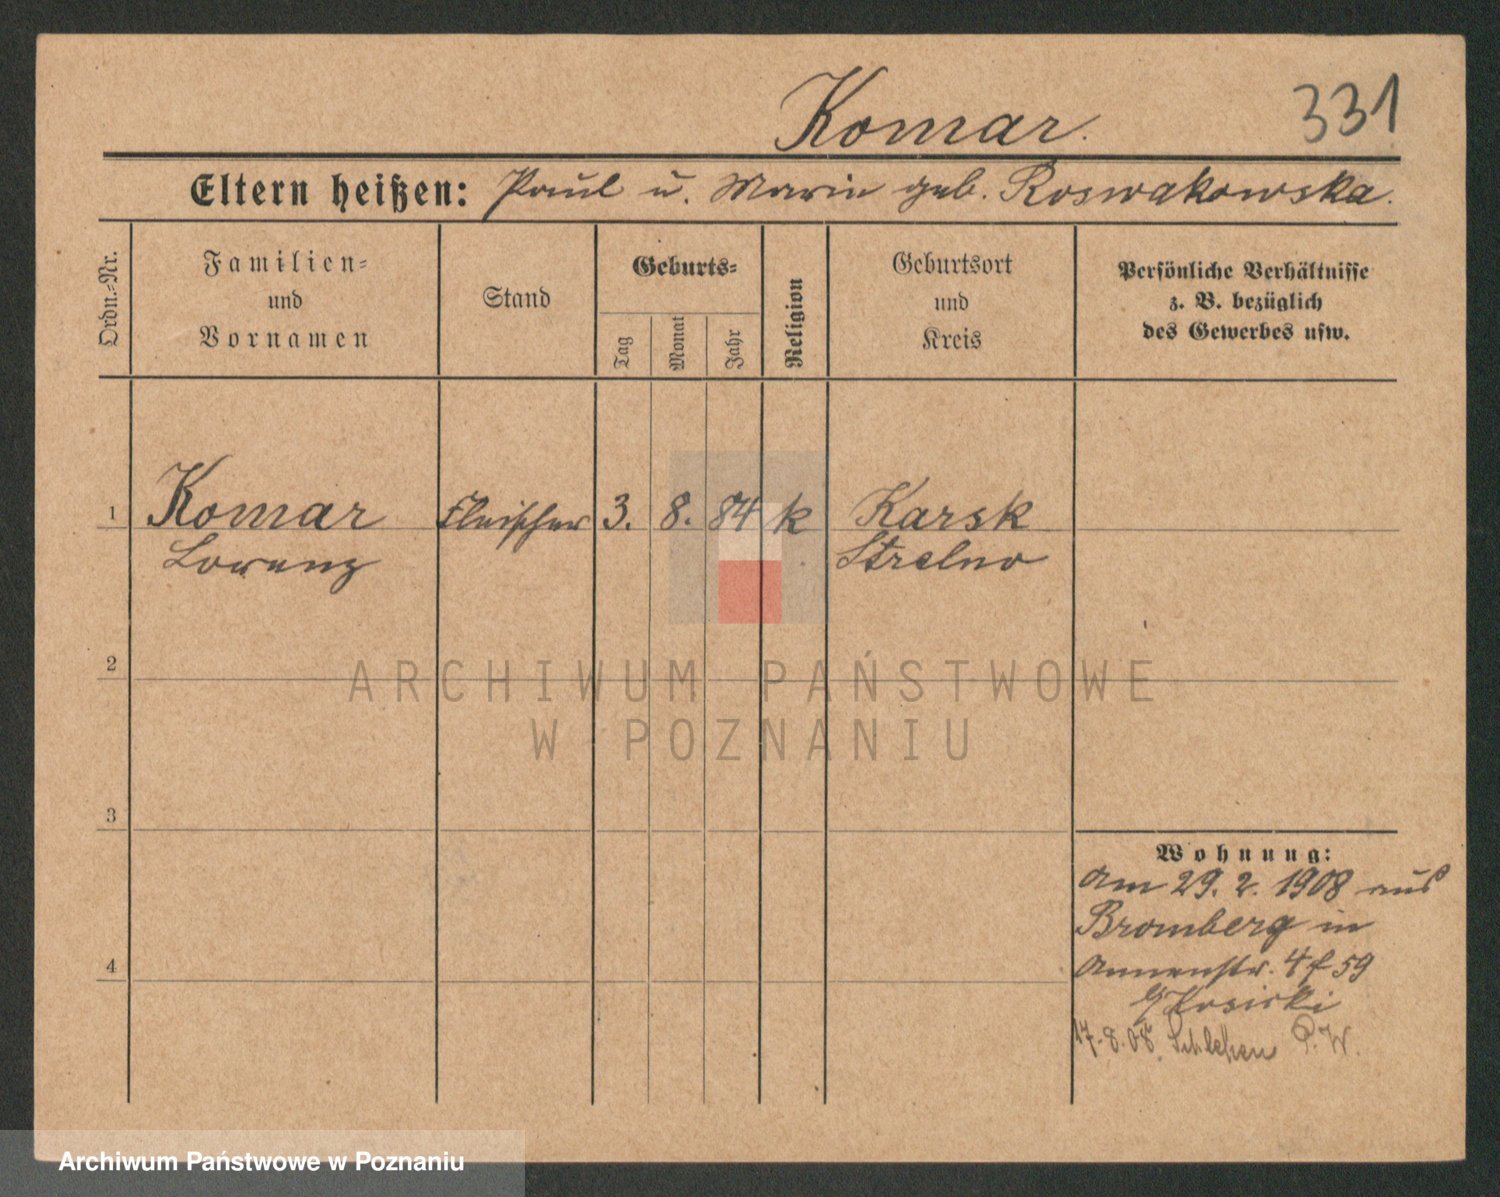 Komar.
331
Eltern heißen: Paul u. Marie geb. Roswakowska.
Ordn.-Nr.
Familien-
und
Vornamen
Stand
Geburts-
Tag
Monat
Jahr
Religion
Geburtsort
und
Kreis
Persönliche Verhältnisse
z. B. bezüglich
des Gewerbes usw.
1
Komar Fleischer 3. 8. 84 k Karsk
Lorenz Strelno
2
ARCHIWUM PAŃSTWOWE
W POZNANIU
3
Wohnung:
Am 29. 2. 1908 aus
Bromberg in
Annenstr. 4 f 59
4
17.8.08. Schlehen P. W.
Archiwum Państwowe w Poznaniu